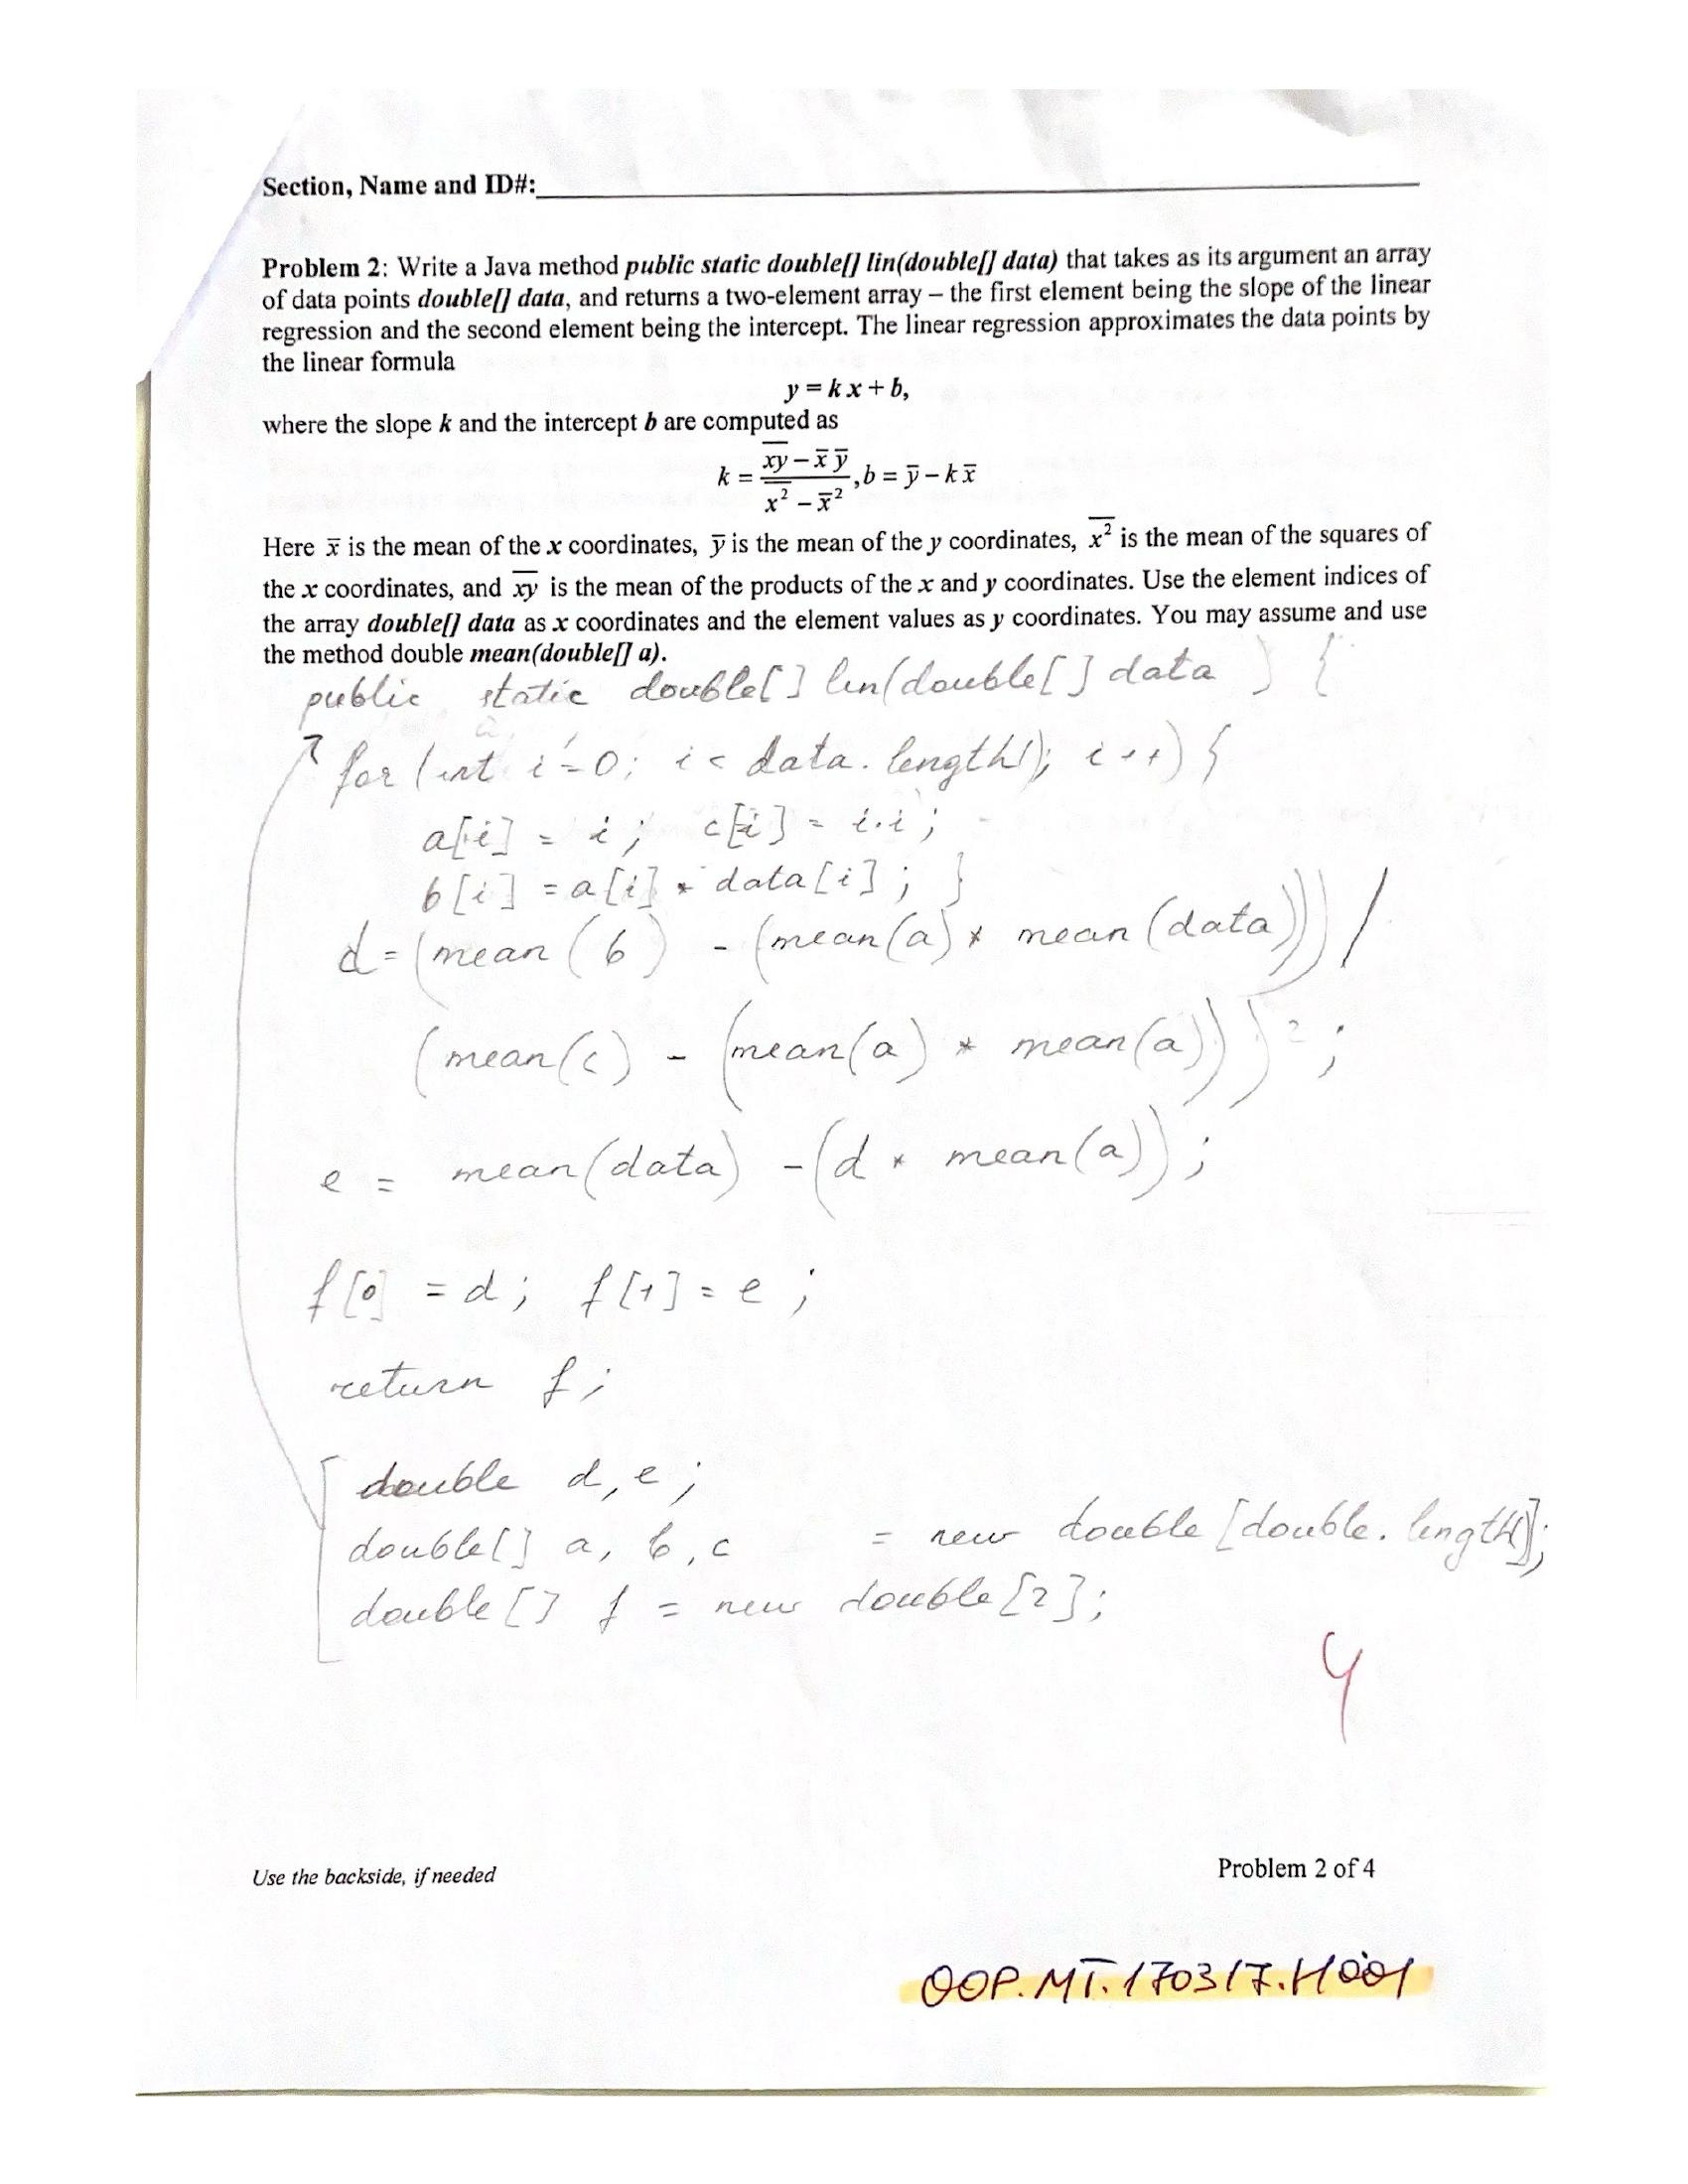 Section, Name and ID#:
Problem 2: Write a Java method public static double[] lin(double[] data) that takes as its argument an array
of data points double[] data, and returns a two-element array – the first element being the slope of the linear
regression and the second element being the intercept. The linear regression approximates the data points by
the linear formula
y = k x + b,
where the slope k and the intercept b are computed as
k = (x̅y̅ − x̅ y̅) / (x²̅ − x̅²), b = y̅ − k x̅
Here x̅ is the mean of the x coordinates, y̅ is the mean of the y coordinates, x²̅ is the mean of the squares of
the x coordinates, and x̅y̅ is the mean of the products of the x and y coordinates. Use the element indices of
the array double[] data as x coordinates and the element values as y coordinates. You may assume and use
the method double mean(double[] a).
public static double[] lin(double[] data ) {
for (int i=0; i< data.length(); i++) {
a[i] = i; c[i] = i·i;
b[i] = a[i] * data[i]; }
d=(mean (b) - (mean(a) * mean (data))) /
(mean(c) - (mean(a) * mean(a)));
e = mean(data) -(d * mean(a));
f[0] = d; f[1] = e;
return f;
double d, e;
double[] a, b, c = new double [double.length()];
double[] f = new double[2];
4
Use the backside, if needed
Problem 2 of 4
OOP.MT.170317.H001